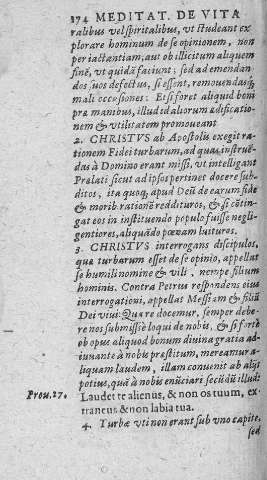 274 MEDITAT. DE VITA
ralibus vel spiritalibus, vt studeant ex
plorare hominum de se opinionem, non
per iactantiam, aut ob illicitum aliquem
finē, vt quidā faciunt; sed ad emendan
dos suos defectus, si essent, remouendasq;
mali occasiones: Et si foret aliquid boni
præ manibus, illud ad aliorum ædificatio-
nem & vtilitatem promoueant.
2. CHRISTVS ab Apostolis exegit ra-
tionem Fidei turbarum, ad quas instruē-
das à Domino erant missi, vt intelligant
Prælati sicut ad ipsos pertinet docere sub-
ditos, ita quoq; apud Deū de earum fide
& morib. rationē reddituros, & si cōtin-
gat eos in instituendo populo fuisse negli-
gentiores, aliquādo pœnam luituros.
3. CHRISTVS interrogans discipulos,
quæ turbarum esset de se opinio, appellat
se humili nomine & vili, nempe filium
hominis. Contra Petrus respondens eius
interrogationi, appellat Messiam & filiū
Dei viui: Qua re docemur, semper debe-
re nos submissè loqui de nobis, & si fortè
ob opus aliquod bonum diuina gratia ad-
iuuante à nobis præstitum, mereamur a-
liquam laudem, illam conuenit ab alijs
potius, quā à nobis enūciari secūdū illud:
Prou. 27. Laudet te alienus, & non os tuum, ex-
traneus & non labia tua.
4. Turbæ vti non erant sub vno capite,
sed